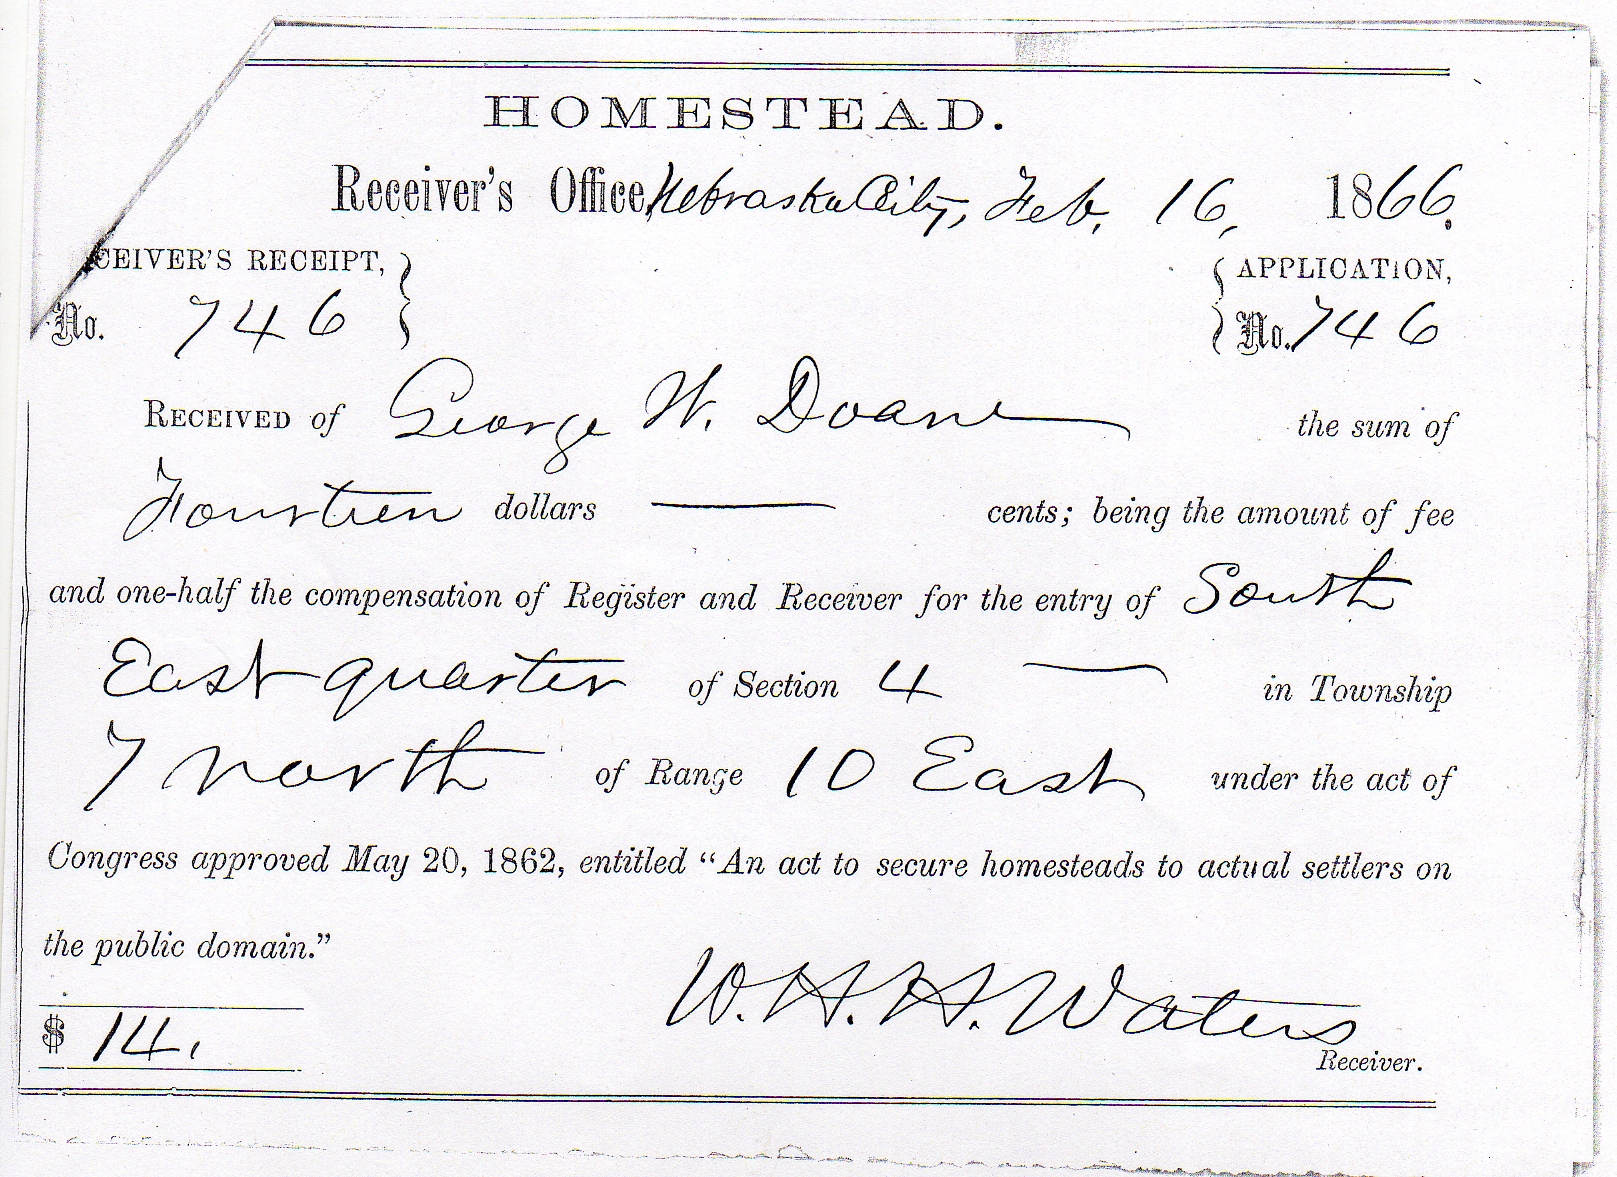 HOMESTEAD.
Receiver's Office, Nebraska City, Feb. 16, 1866.
CEIVER'S RECEIPT, APPLICATION,
No. 746 No. 746
RECEIVED of George W. Doane the sum of
Fourteen dollars — cents; being the amount of fee
and one-half the compensation of Register and Receiver for the entry of South
East quarter of Section 4 — in Township
7 north of Range 10 East under the act of
Congress approved May 20, 1862, entitled "An act to secure homesteads to actual settlers on
the public domain."
W. H. H. Waters
$ 14.
Receiver.